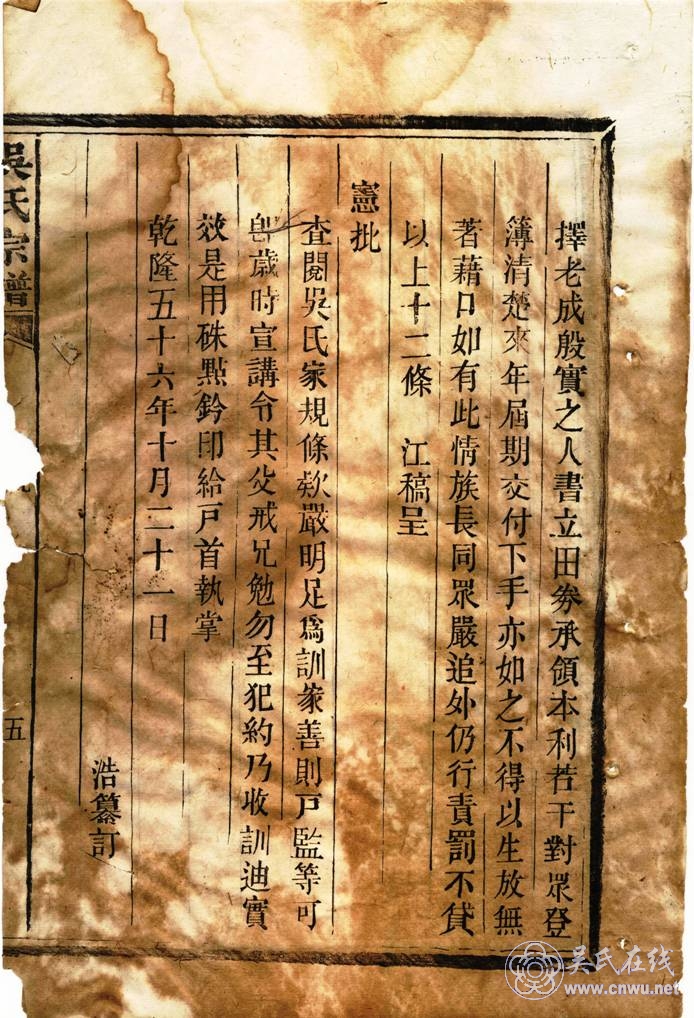 擇老成殷實之人書立田劵承領本利若干對眾登
簿清楚來年屆期交付下手亦如之不得以生放無
著藉口如有此情族長同眾嚴追外仍行責罰不貸
以上十二條　江稿呈
憲批
查閱吳氏家規條欵嚴明足爲訓家善則戸監等可
卽歲時宣講令其父戒兄勉勿至犯約乃收訓迪實
效是用硃㸃鈐印給戸首執掌
乾隆五十六年十月二十一日
浩纂訂
吳氏宗譜
五
吴氏在线
www.cnwu.net